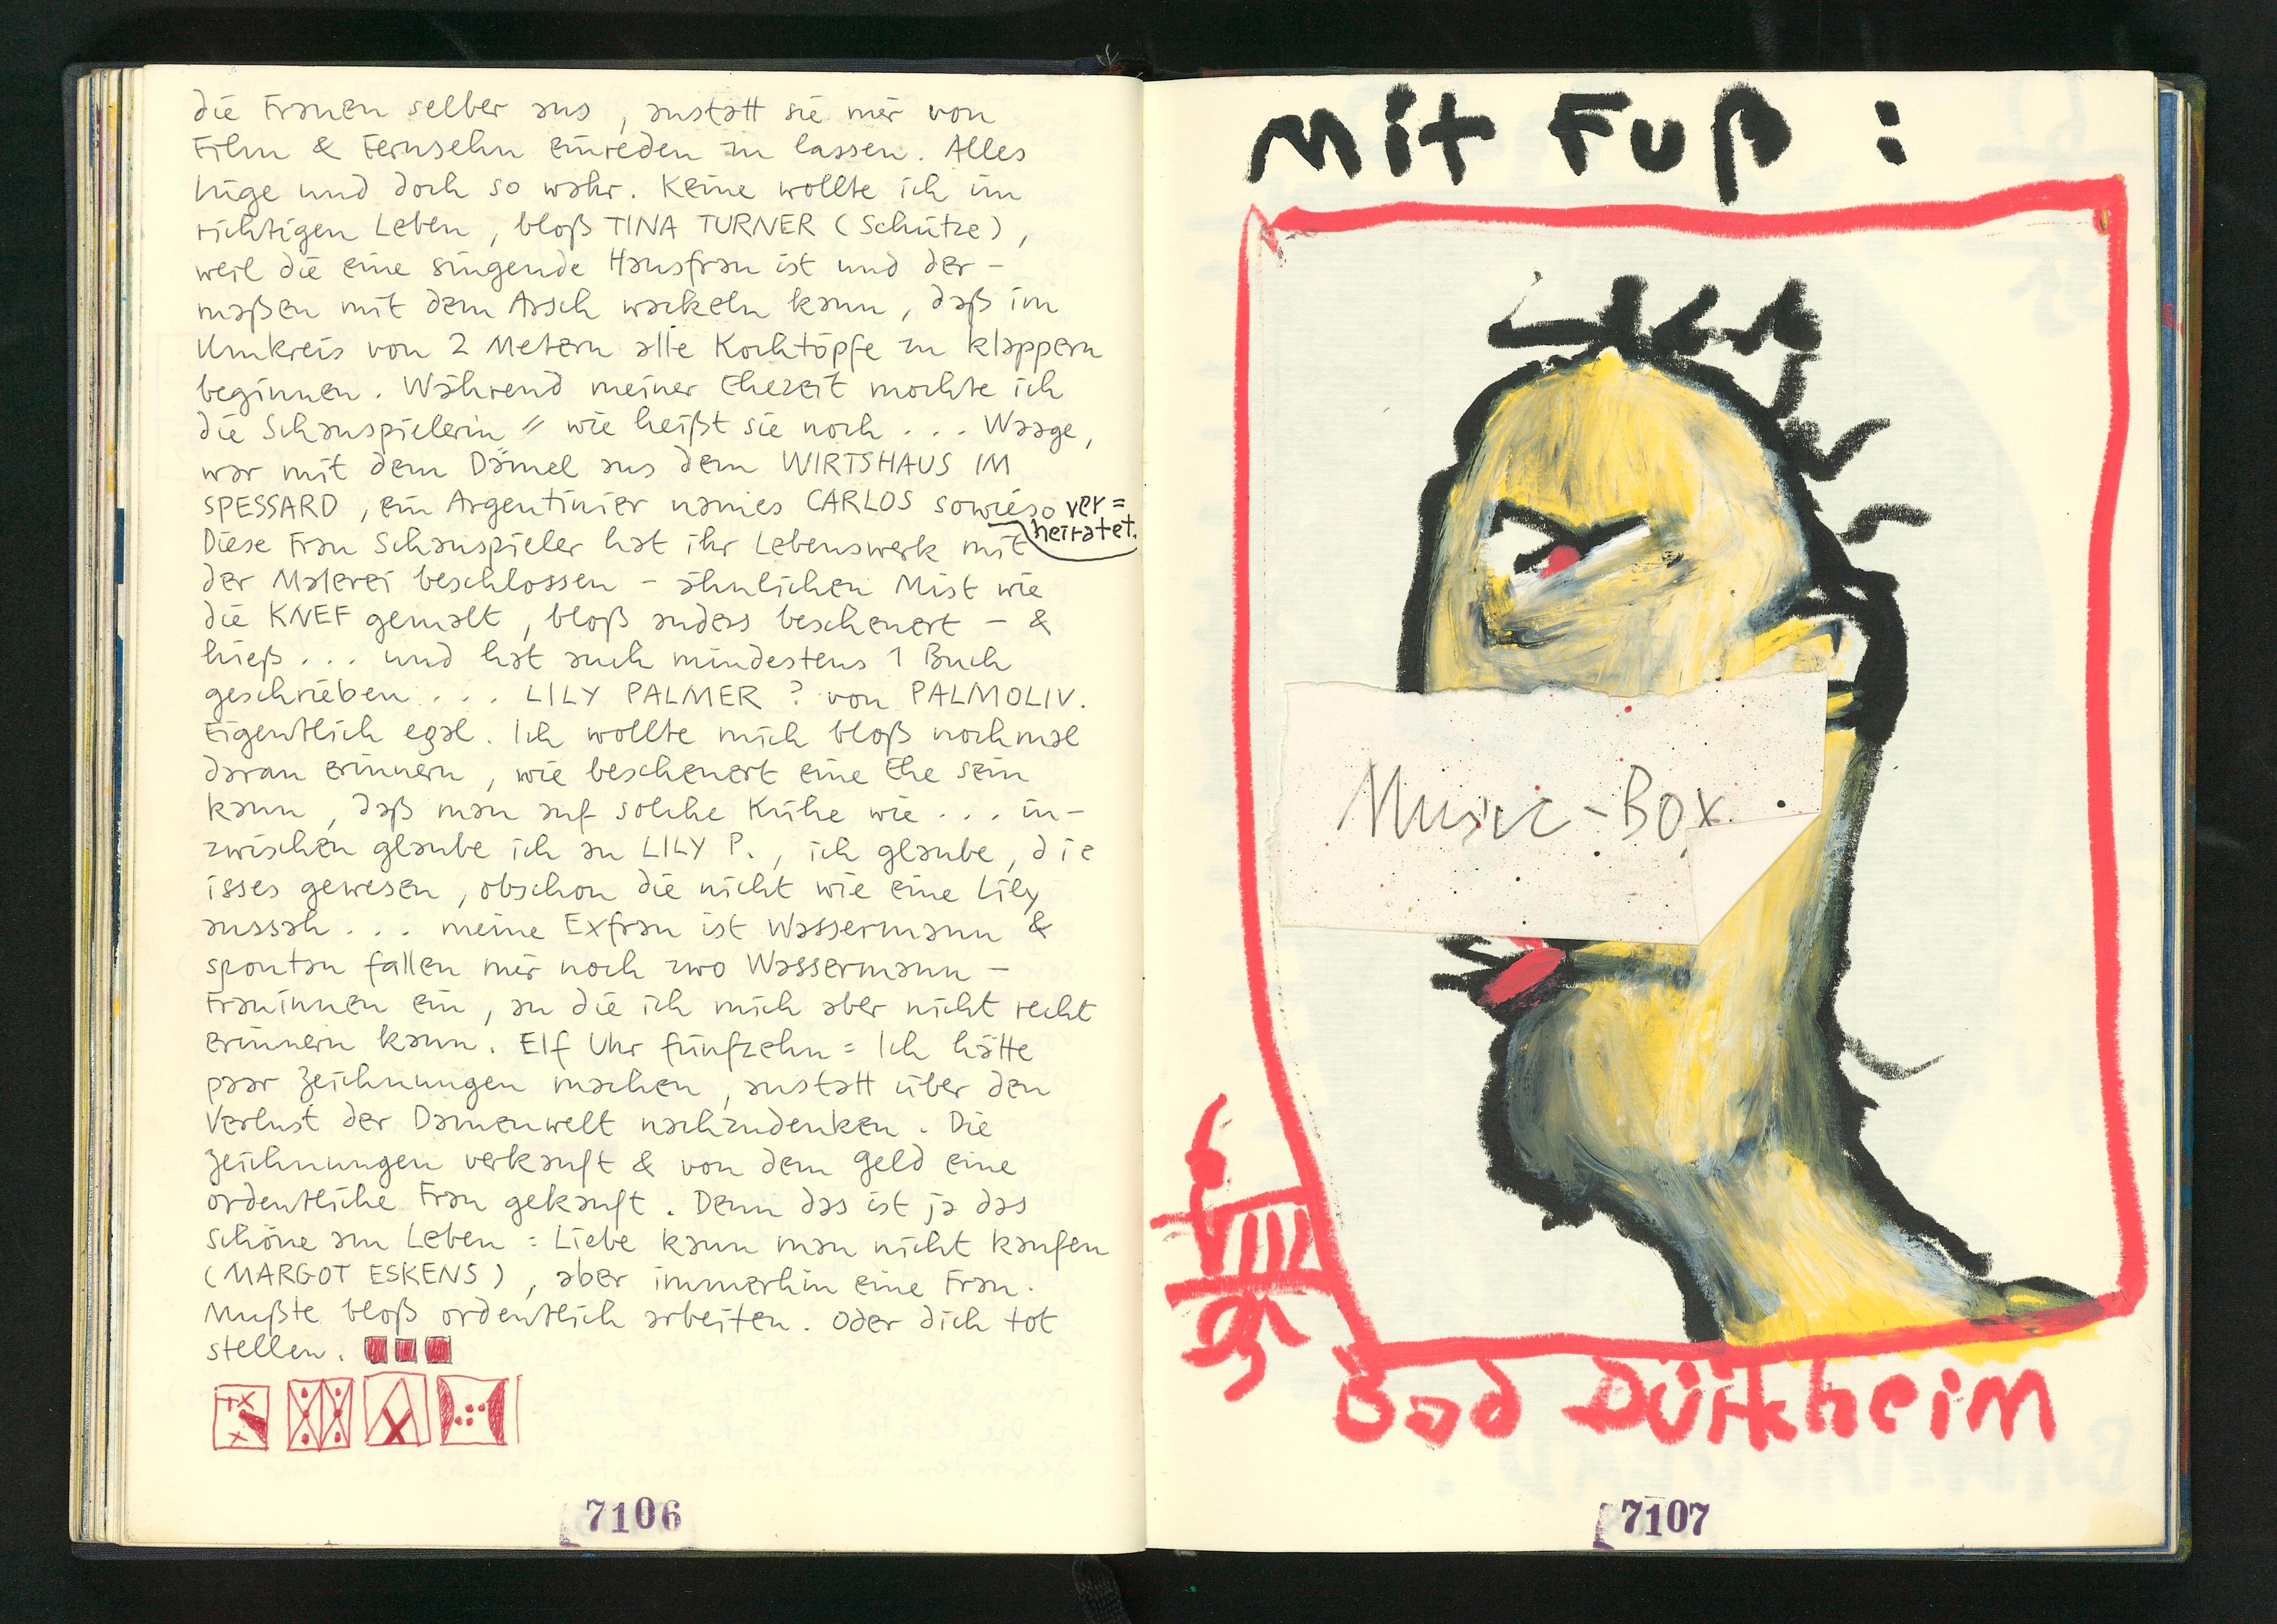 die Frauen selber aus, anstatt sie mir von
Film & Fernsehn einreden zu lassen. Alles
Lüge und doch so wahr. Keine wollte ich im
richtigen Leben, bloß TINA TURNER (Schütze),
weil die eine singende Hausfrau ist und der-
maßen mit dem Arsch wackeln kann, daß im
Umkreis von 2 Metern alle Kochtöpfe zu klappern
beginnen. Während meiner Ehezeit mochte ich
die Schauspielerin // wie heißt sie noch ... Waage,
war mit dem Dämel aus dem WIRTSHAUS IM
SPESSARD, ein Argentinier names CARLOS sowieso ver=
heiratet.
Diese Frau Schauspieler hat ihr Lebenswerk mit
der Malerei beschlossen – ähnlichen Mist wie
die KNEF gemalt, bloß anders bescheuert – &
hieß ... und hat auch mindestens 1 Buch
geschrieben ... LILY PALMER ? von PALMOLIV.
Eigentlich egal. Ich wollte mich bloß nochmal
daran erinnern, wie bescheuert eine Ehe sein
kann, daß man auf solche Kühe wie ... in-
zwischen glaube ich an LILY P., ich glaube, die
isses gewesen, obschon die nicht wie eine Lily
aussah ... meine Exfrau ist Wassermann &
spontan fallen mir noch zwo Wassermann-
Frauinnen ein, an die ich mich aber nicht recht
erinnern kann. Elf Uhr fünfzehn = Ich hätte
paar Zeichnungen machen, anstatt über den
Verlust der Damenwelt nachzudenken. Die
Zeichnungen verkauft & von dem Geld eine
ordentliche Frau gekauft. Denn das ist ja das
Schöne am Leben = Liebe kann man nicht kaufen
(MARGOT ESKENS), aber immerhin eine Frau.
Mußte bloß ordentlich arbeiten. Oder dich tot
stellen.
7106
Mit Fuß :
Music-Box
6
VIII
95
Bad Dürkheim
7107